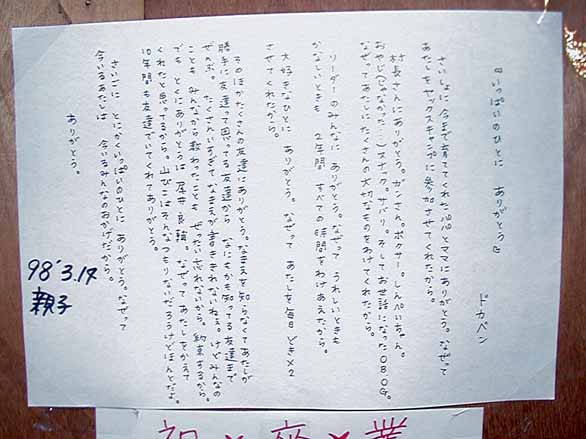 『いっぱいのひとに　ありがとう』
ドカベン
さいしょに 今まで育ててくれたパパとママにありがとう。なぜって
あたしをヤックスキャンプに参加させてくれたから。
村長さんにありがとう。カンさん。ボクサー。しんぺいちゃん。
おやじ(じゃなかった…)スナック。サバリ。そしてお世話になったOBOG。
なぜってあたしにたくさんの大切なものをわけてくれたから。
リーダーのみんなに ありがとう。なぜって うれしいときも
かなしいときも 2年間 すべての時間をわけあえたから。
大好きなひとに ありがとう。なぜって あたしを毎日 どき×2
させてくれたから。
そのほかたくさんの友達にありがとう。なまえを知らなくてあたしが
勝手に友達って思ってる友達から なにもかも知ってる友達まで
ぜんぶ。たっさんいすぎて なまえが書ききれないねぇ。けどみんなの
ことも みんなから教わったことも ぜったい忘れないから。約束するから。
でも とくにありがとうは 尾井良輪。なぜってあたしをかえて
くれたと思ってるから。山びこはそんなつもりないだろうけどほんとだよ。
10年間も友達でいてくれてありがとう。
さいごに とにかくいっぱいのひとに ありがとう。なぜって
今いるあたしは 今いるみんなのおかげだから。
ありがとう。
98'3.14
親子
祝×卒×業